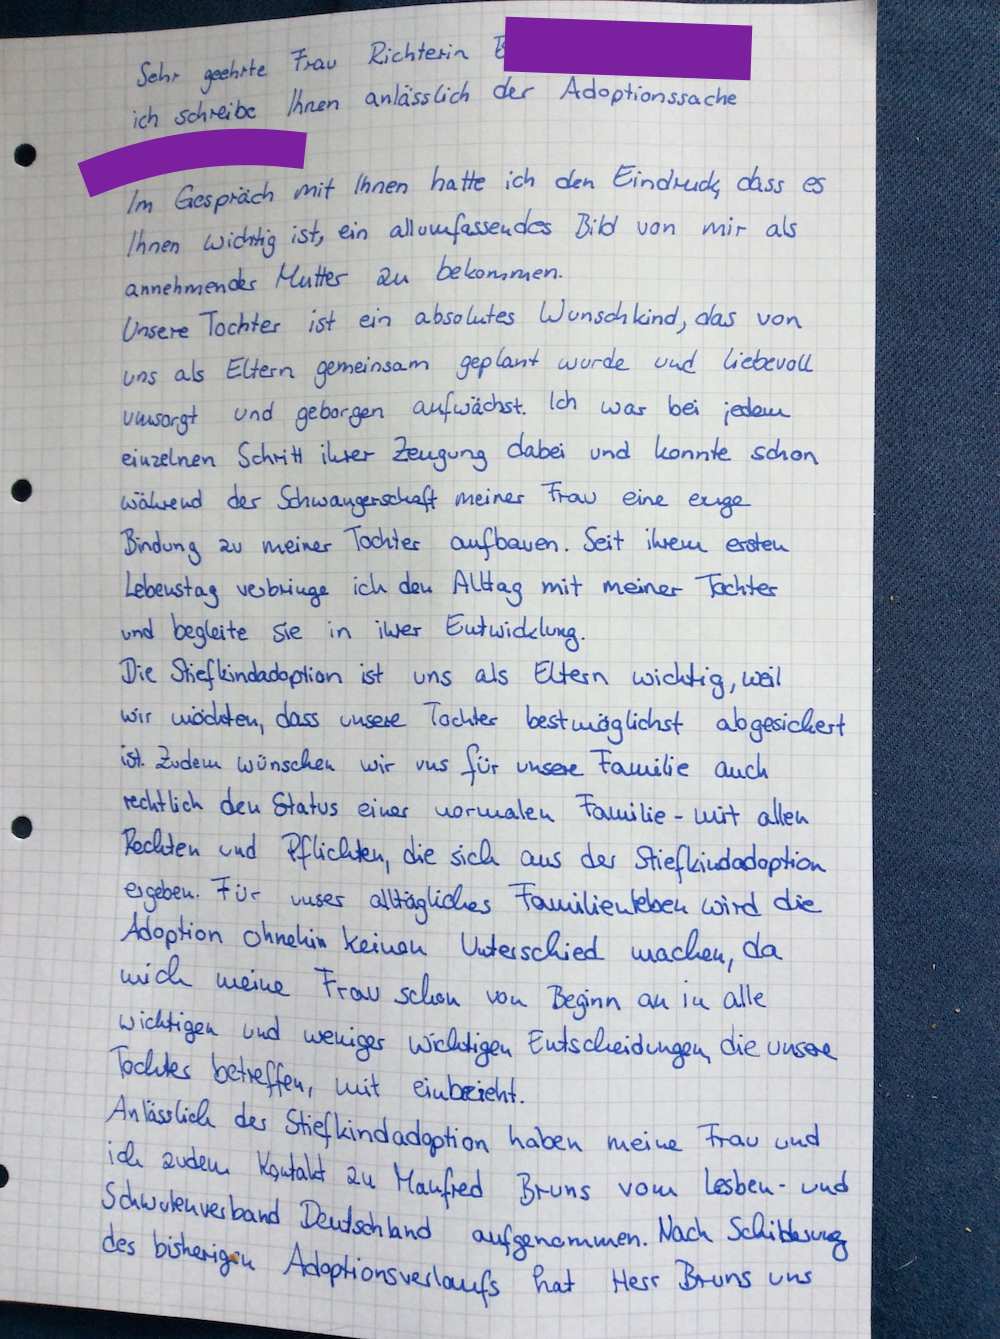 Sehr geehrte Frau Richterin
ich schreibe Ihnen anlässlich der Adoptionssache
Im Gespräch mit Ihnen hatte ich den Eindruck, dass es
Ihnen wichtig ist, ein allumfassendes Bild von mir als
annehmender Mutter zu bekommen.
Unsere Tochter ist ein absolutes Wunschkind, das von
uns als Eltern gemeinsam geplant wurde und liebevoll
umsorgt und geborgen aufwächst. Ich war bei jedem
einzelnen Schritt ihrer Zeugung dabei und konnte schon
während der Schwangerschaft meiner Frau eine enge
Bindung zu meiner Tochter aufbauen. Seit ihrem ersten
Lebenstag verbringe ich den Alltag mit meiner Tochter
und begleite sie in ihrer Entwicklung.
Die Stiefkindadoption ist uns als Eltern wichtig, weil
wir möchten, dass unsere Tochter bestmöglichst abgesichert
ist. Zudem wünschen wir uns für unsere Familie auch
rechtlich den Status einer normalen Familie - mit allen
Rechten und Pflichten, die sich aus der Stiefkindadoption
ergeben. Für unser alltägliches Familienleben wird die
Adoption ohnehin keinen Unterschied machen, da
mich meine Frau schon von Beginn an in alle
wichtigen und weniger wichtigen Entscheidungen, die unsere
Tochter betreffen, mit einbezieht.
Anlässlich der Stiefkindadoption haben meine Frau und
ich zudem Kontakt zu Manfred Bruns vom Lesben- und
Schwulenverband Deutschland aufgenommen. Nach Schilderung
des bisherigen Adoptionsverlaufs hat Herr Bruns uns